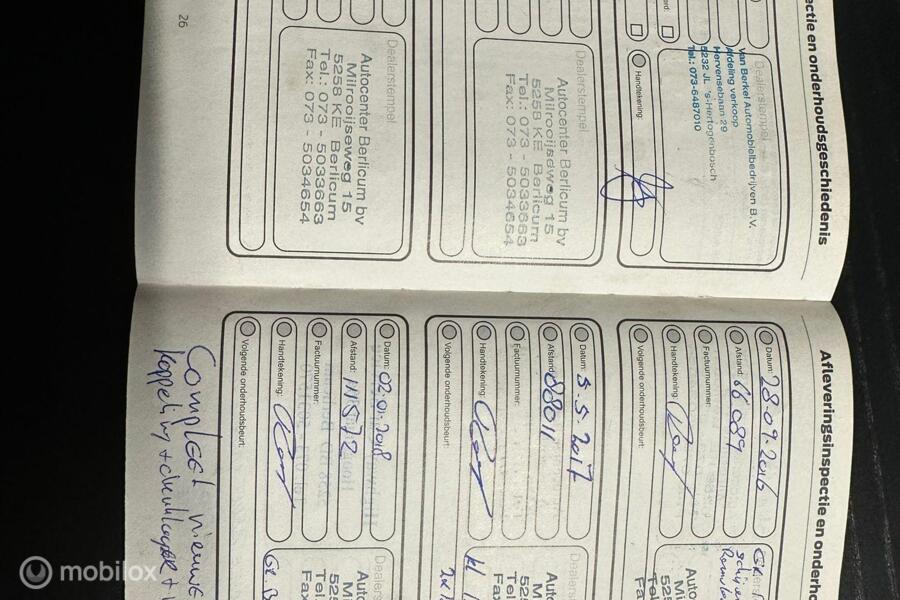 ectie en onderhoudsgeschiedenis
Dealerstempel
Van Berkel Automobielbedrijven B.V.
Afdeling verkoop
Hervensebaan 29
5232 JL 's-Hertogenbosch
Tel.: 073-6487010
Handtekening:
Dealerstempel
Autocenter Berlicum bv
Milrooijseweg 15
5258 KE Berlicum
Tel.: 073 - 5033663
Fax: 073 - 5034654
Dealerstempel
Autocenter Berlicum bv
Milrooijseweg 15
5258 KE Berlicum
Tel.: 073 - 5033663
Fax: 073 - 5034654
26
Afleveringsinspectie en onderho
Datum: 28-09-2016
Afstand: 66089
Factuurnummer:
Handtekening:
Volgende onderhoudsbeurt:
Datum: 5-5-2017
Afstand: 88011
Factuurnummer:
Handtekening:
Volgende onderhoudsbeurt:
Datum: 02-01-2018
Afstand: 111572
Factuurnummer:
Handtekening:
Volgende onderhoudsbeurt:
Compleet nieuwe
koppeling + druklager +
mobilox